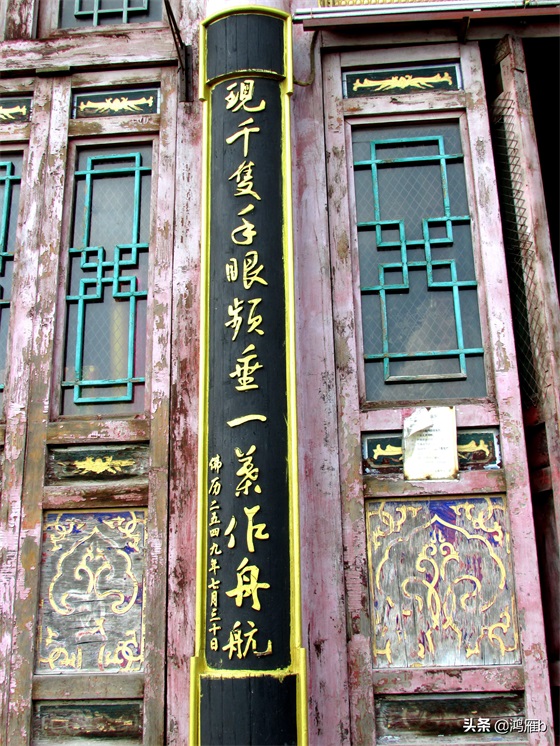 現千隻手眼頻垂一葉作舟航
佛历二五四九年七月三十日
头条 @鸿雁b